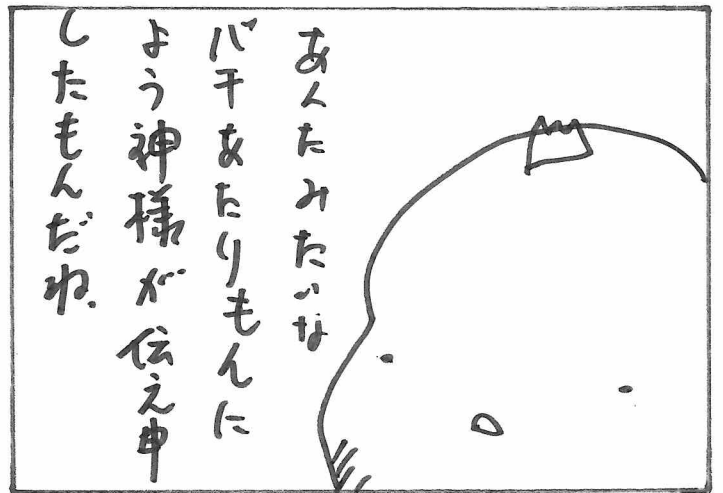 あんたみたいな
バチあたりもんに
よう神様が伝え申
したもんだね、